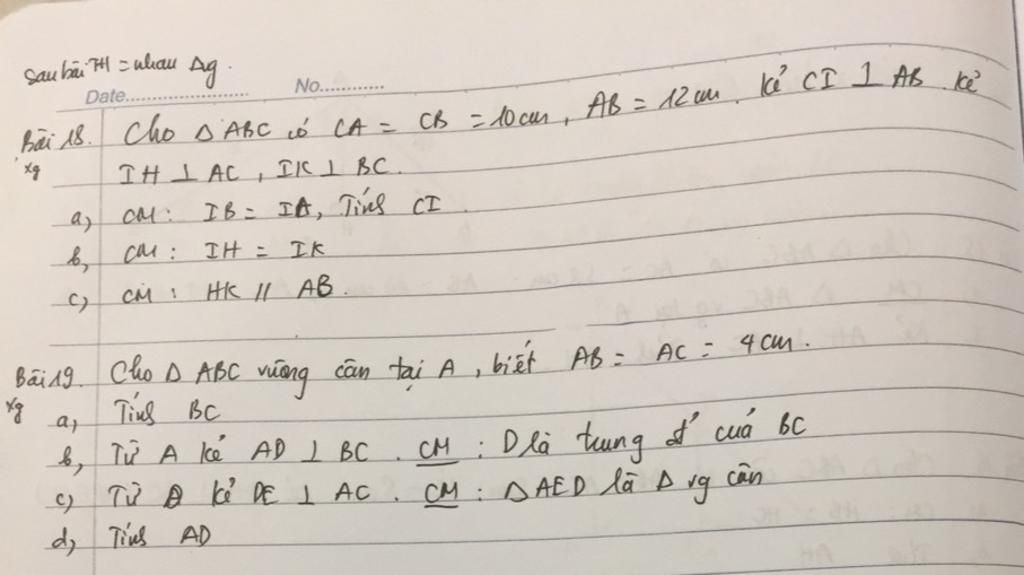 Sau bài TH = nhau Δg.
Date........................ No............
Bài 18. Cho Δ ABC có CA = CB = 10cm, AB = 12cm. Kẻ CI ⊥ AB. Kẻ
xg IH ⊥ AC, IK ⊥ BC.
a, CM: IB = IA, Tính CI
b, CM: IH = IK
c, CM: HK // AB.
Bài 19. Cho Δ ABC vuông cân tại A, biết AB = AC = 4cm.
xg a, Tính BC
b, Từ A kẻ AD ⊥ BC. CM: D là trung đ' của BC
c, Từ D kẻ DE ⊥ AC. CM: ΔAED là Δ vg cân
d, Tính AD